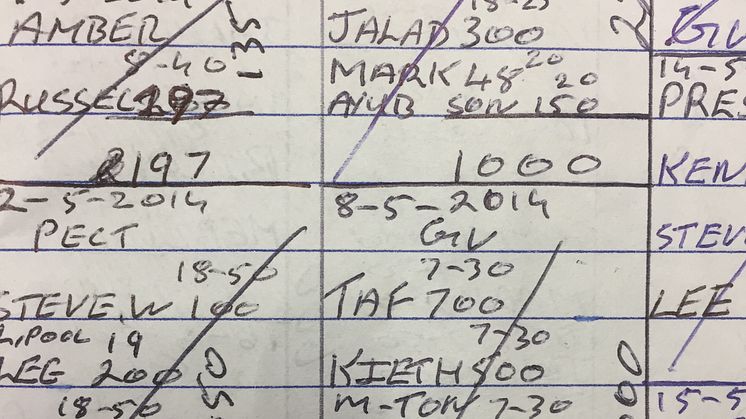 AMBER
135
8-40
RUSSEL 197
2197
2-5-2014
PECT
18-50
STEVE.W 100
L,POOL 19
LEE 200
50
18-50
18-25
JALAD 300
20
MARK 48 20
AYUB SON 150
1000
8-5-2014
GV
7-30
TAF 700
7-30
KIETH 800
00
M-TON 7-30
GV
14-5
PRES
KEN
STEV
LEE
15-5